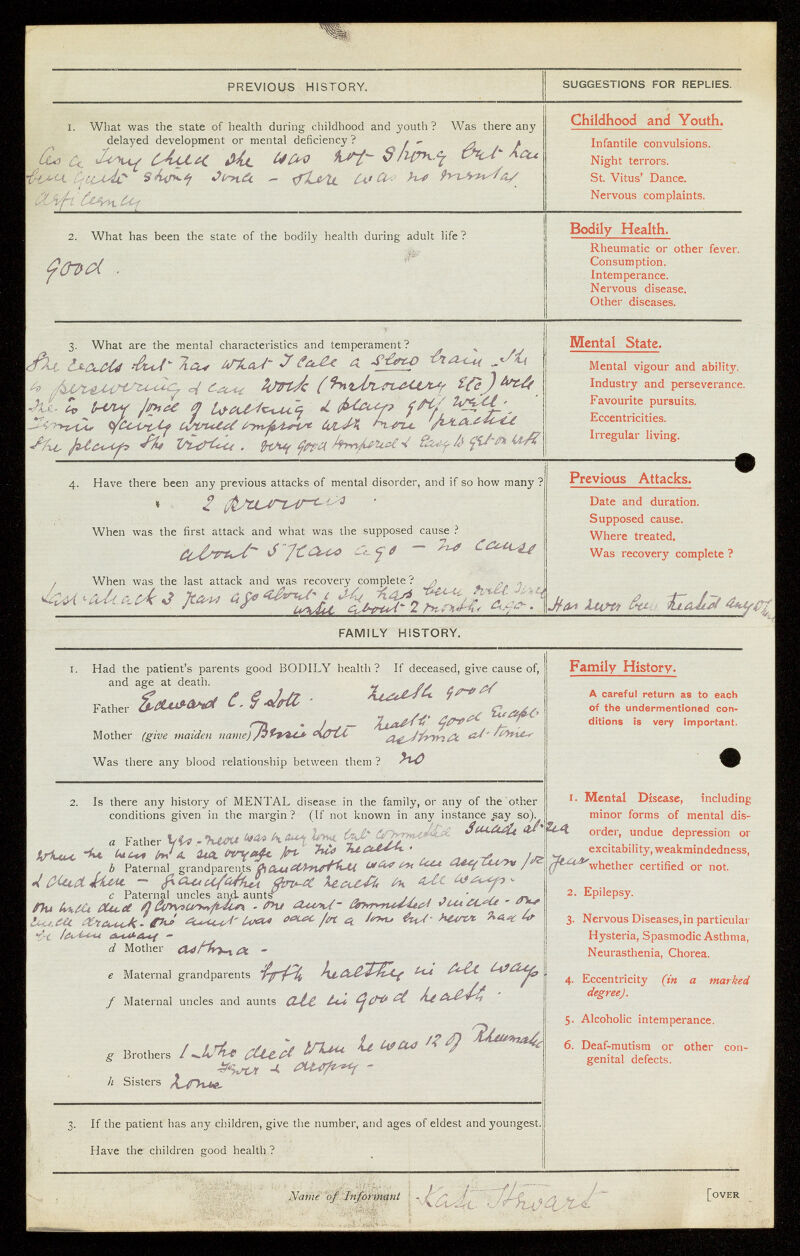 PREVIOUS HISTORY.
SUGGESTIONS FOR REPLIES.
1. What was the state of health during childhood and youth? Was there any
delayed development or mental deficiency?
As a Tiny child she was not strong but has
been quite strong since - there was no mental
deficiency
Childhood and Youth.
Infantile convulsions.
Night terrors.
St. Vitus' Dance.
Nervous complaints.
2. What has been the state of the bodily health during adult life?
good.
Bodily Health.
Rheumatic or other fever.
Consumption.
Intemperance.
Nervous disease.
Other diseases.
3. What are the mental characteristics and temperament?
She reads but has what I call a slow brain. She
is persevering & can work (Embroidery Etc) well
She is very fond of walking & plays golf well.
Tennis fairly would improve with more practice
She plays the Violin. very good tempered & Easy to get on with
Mental State.
Mental vigour and ability.
Industry and perseverance.
Favourite pursuits.
Eccentricities.
Irregular living.
4. Have there been any previous attacks of mental disorder, and if so how many?
2 previous
When was the first attack and what was the supposed cause?
about 5 years ago - no cause
When was the last attack and was recovery complete?
Last attack 3 years ago about & she has been well since
until about 2 months ago.
Has never been treated
Previous Attacks.
Date and duration.
Supposed cause.
Where treated.
Was recovery complete?
FAMILY HISTORY.
1. Had the patient's parents good BODILY health? If deceased, give cause of,
and age at death.
Father Edward C. G Lott. health good
Mother (give maiden name) Bessie Lott health good Except
asthma at times
Was there any blood relationship between them? no
Family History.
A careful return as to each
of the undermentioned con-
ditions is very important.
2. Is there any history of MENTAL disease in the family, or any of the other
conditions given in the margin? (If not known in any instance say so).
a Father Yes - never was in any home but committed Suicide at sea
when he was on a sea voyage for his health.
b Paternal grandparents grandmother was in an asylum for years
& died there - grandfather good health in all ways.
c Paternal uncles and aunts
One uncle died of Consumption. One aunt committed suicide - one
uncle drank. One aunt was odd for a time but never had to
be taken away -
d Mother asthma -
e Maternal grandparents both healthy in all ways.
f Maternal uncles and aunts all in good health.
g Brothers 1 - Who died when he was 12 of Rheumatic
Fever & dropsy -
h Sisters none
1. Mental Disease, including
minor forms of mental dis-
order, undue depression or
excitability, weakmindedness,
whether certified or not.
2. Epilepsy.
3. Nervous Diseases, in particular
Hysteria, Spasmodic Asthma,
Neurasthenia, Chorea.
4. Eccentricity (in a marked
degree).
5. Alcoholic intemperance.
6. Deaf-mutism or other con-
genital defects.
3. If the patient has any children, give the number, and ages of eldest and youngest.
Have the children good health?
Name of Informant Kate Stewart
[OVER